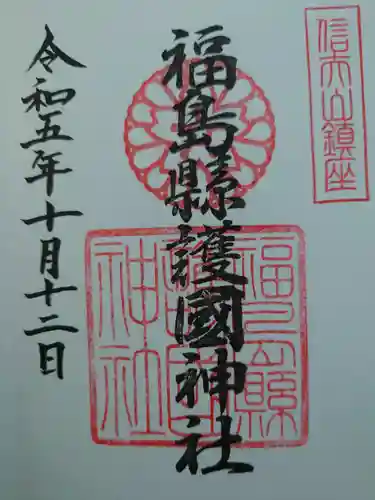 信夫山鎮座
福島縣護國神社
令和五年十月十二日
福島縣
護國
神社